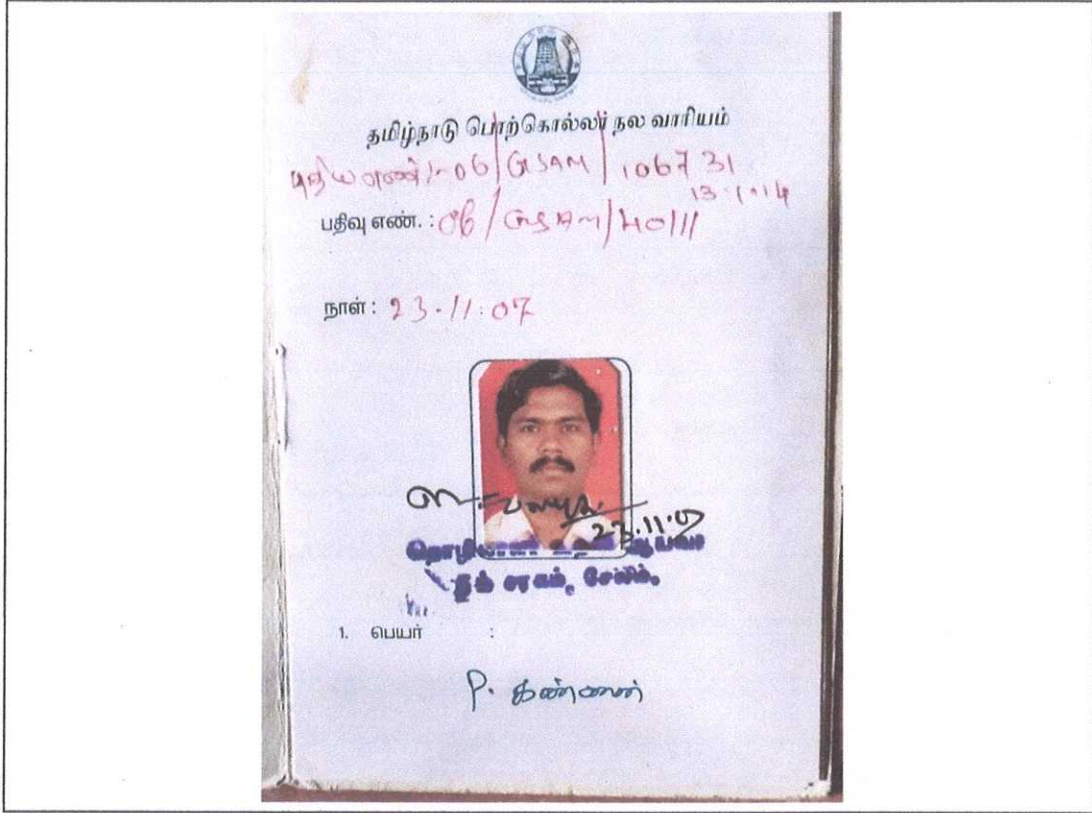 தமிழ்நாடு பொற்கொல்லர் நல வாரியம்
புதிய எண்:- 06/GSAM/106731
13.1.14
பதிவு எண். : 06/GSAM/40111
நாள் : 23.11.07
23.11.07
சரகம், சேலம்.
1. பெயர் :
P. கண்ணன்